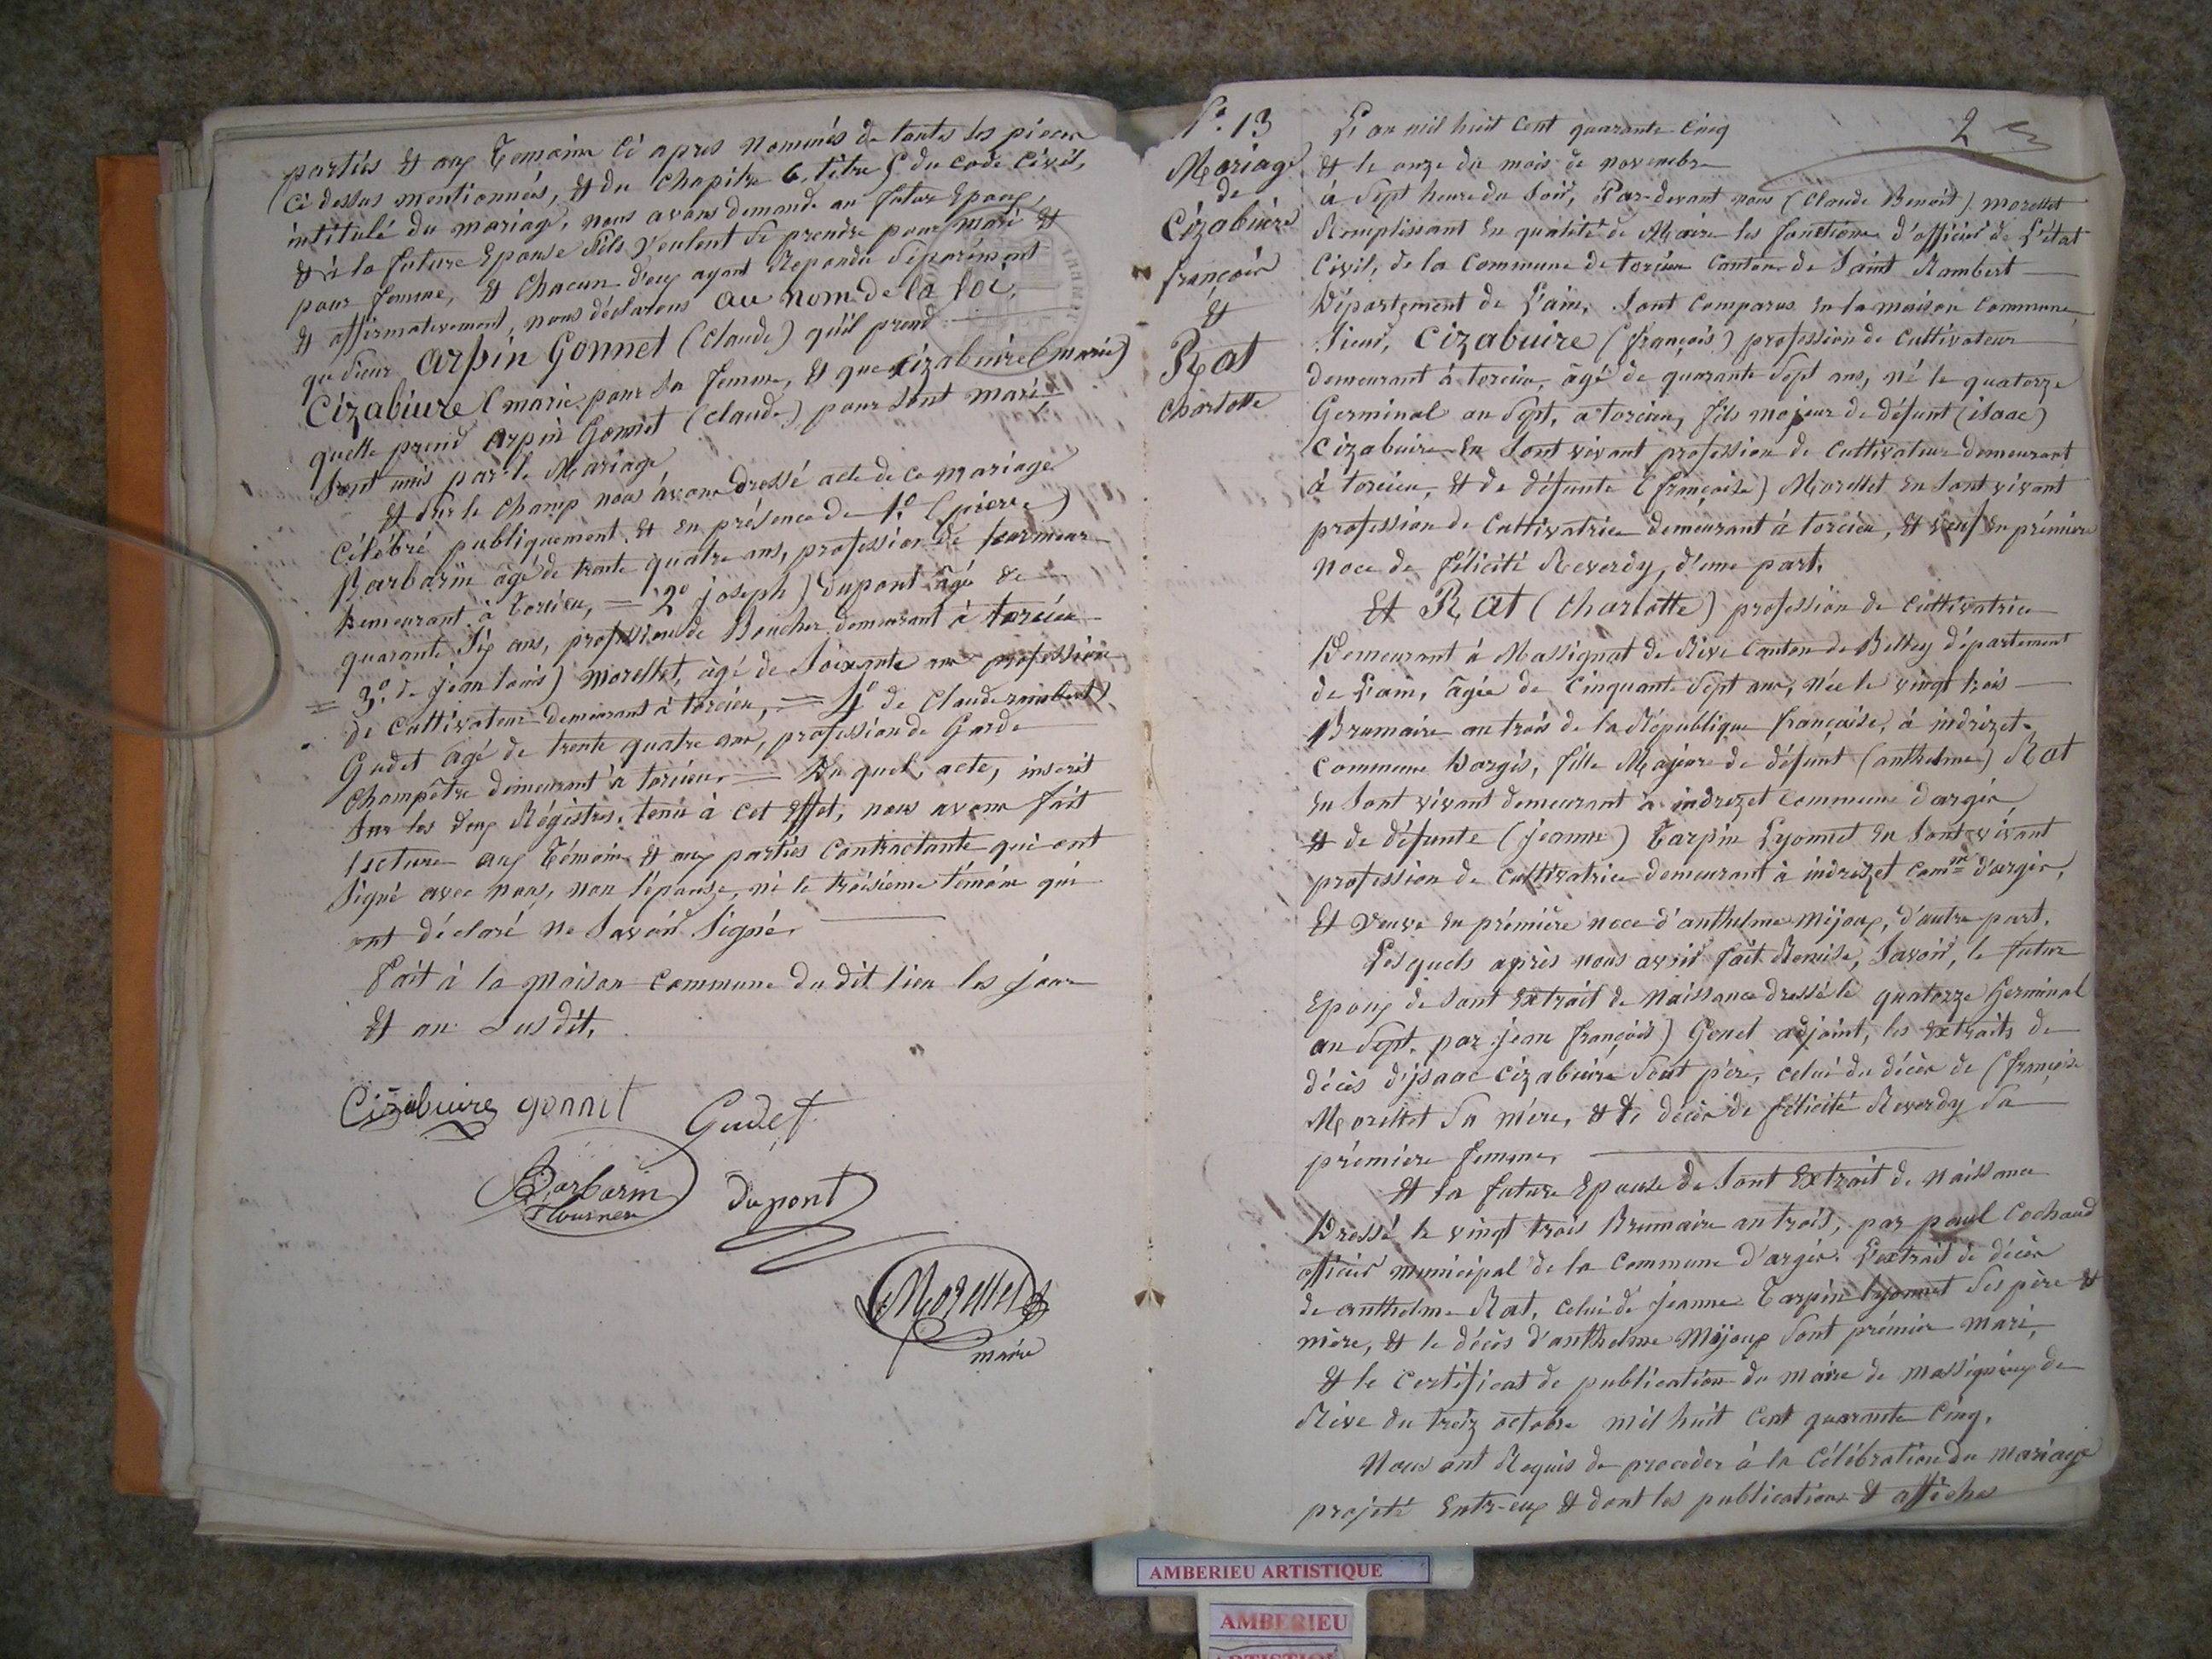 parties et aux temoins ci apres nommés de toutes les pieces
ci dessus mentionnées, et du chapitre 6, titre 5 du code civil,
intitulé du mariage, nous avons demandé au futur Epoux,
et à la future Epouse s'ils veulent se prendre pour mari et
pour femme, et chacun d'eux ayant Repondu séparément
et affirmativement, nous déclarons au nom de la loi,
que sieur Arpin Gonnet (Claude) qu'il prend
Cizabuire (marie) pour sa femme, et que Cizabuire (marie)
quelle prend Arpin Gonnet (Claude) pour sont mari
sont unis par le Mariage,
et sur le champ nous avons dressé acte de ce mariage
célébré publiquement et en présence de 1º (pierre)
Barbarin âgé de trente quatre ans, profession de
demeurant à torcieu, = 2º joseph) Dupont âgé de
quarante six ans, profession de Boucher demeurant à torcieu
= 3º de jean louis) Morellet, âgé de soixante ans profession
de cultivateur demeurant à torcieu, = 4º de Claude rambert)
Gudet âgé de trente quatre ans, profession de Garde
champêtre demeurant à torcieu = Du quel, acte, inscrit
sur les deux Régistres, tenu à cet effet, nous avons fait
lecture aux témoins et aux parties contractante qui ont
signé avec nous, non l'épouse, ni le troisieme témoin qui
ont déclaré ne savoir signé.
Fait à la maison commune du dit lieu les jour
et an susdit,
Cizabuire gonnet Gudet
Barbarin dupont
Morellet
maire
Nº 13
Mariage
de
Cizabuire
françois
et
Rat
Charlotte
2
L'an mil huit cent quarante cinq
et le onze du mois de novembre
à sept heure du soir, Par-devant nous (Claude Benoit) morellet
Remplissant en qualité de Maire les fonctions d'officier de l'état
civil, de la commune de torcieu canton de Saint Rambert
Département de l'ain, sont comparus en la maison commune,
Sieur, Cizabuire (françois) profession de cultivateur
demeurant à torcieu, âgé de quarante sept ans, né le quatorze
Germinal an sept, a torcieu, fils majeur de défunt (isaac)
Cizabuire en sont vivant profession de cultivateur demeurant
à torcieu, et de défunte (françoise) Morellet en sont vivant
profession de cultivatrice demeurant à torcieu, et veuf en prémière
noce de félicité Reverdy, d'une part,
Et Rat (Charlotte) profession de cultivatrice
Demeurant à Massignat de Rive canton de Belley département
de l'ain, âgée de cinquante sept ans, née le vingt trois
Brumaire an trois de la République française, à indrizet
commune dargis, fille Majeure de défunt (anthelme) Rat
en sont vivant demeurant à indrezet commune dargis
et de défunte (jeanne) Tarpin Lyonnet en sont vivant
profession de cultivatrice demeurant à indrezet comne d'argis,
et veuve en prémière noce d'anthelme mijoux, d'autre part.
Les quels après nous avoir fait Remise, savoir, le futur
epoux de sont extrait de naissance dressé le quatorze Germinal
an sept, par jean françois) Genet adjoint, les extraits de
décès d'isaac cizabuire sont père, celui du décès de (françoise
Morellet sa mère, et de décès de félicité Reverdy sa
prémière femme.
et la future epouse de sont extrait de naissance
Dressé le vingt trois Brumaire an trois, par paul Cochaud
officier municipal de la commune d'argis. L'extrait de décès
de anthelme Rat, celui de jeanne Tarpin lyonnet ses père et
mère, et le décès d'anthelme Mijoux sont prémier mari,
et le certificat de publication du maire de massignieux de
Rive du treiz octobre mil huit cent quarante cinq.
Nous ont Requis de proceder à la célébration du mariage
projeté entr-eux et dont les publications et affiches
AMBERIEU ARTISTIQUE
AMBERIEU
ARTISTIQUE